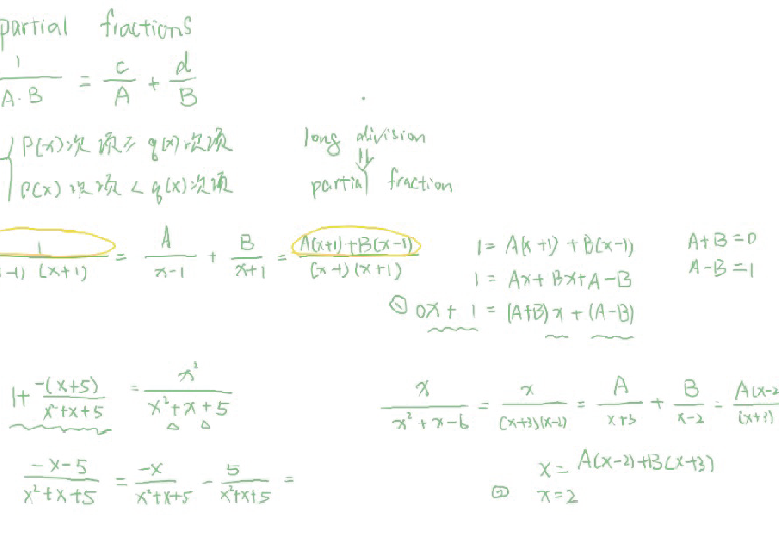 partial fractions
1/(A·B) = c/A + d/B
P(x)次项 ≥ q(x)次项 long division
⇓
P(x)次项 < q(x)次项 partial fraction
1/((x-1)(x+1)) = A/(x-1) + B/(x+1) = (A(x+1)+B(x-1))/((x-1)(x+1))
1 = A(x+1) + B(x-1) A+B=0
1 = Ax+Bx+A-B A-B=1
① 0x + 1 = (A+B)x + (A-B)
1 + -(x+5)/(x²+x+5) = x²/(x²+x+5)
x/(x²+x-6) = x/((x+3)(x-2)) = A/(x+3) + B/(x-2) = A(x-2/(x+3)
(-x-5)/(x²+x+5) = -x/(x²+x+5) - 5/(x²+x+5) =
x = A(x-2)+B(x+3)
② x=2